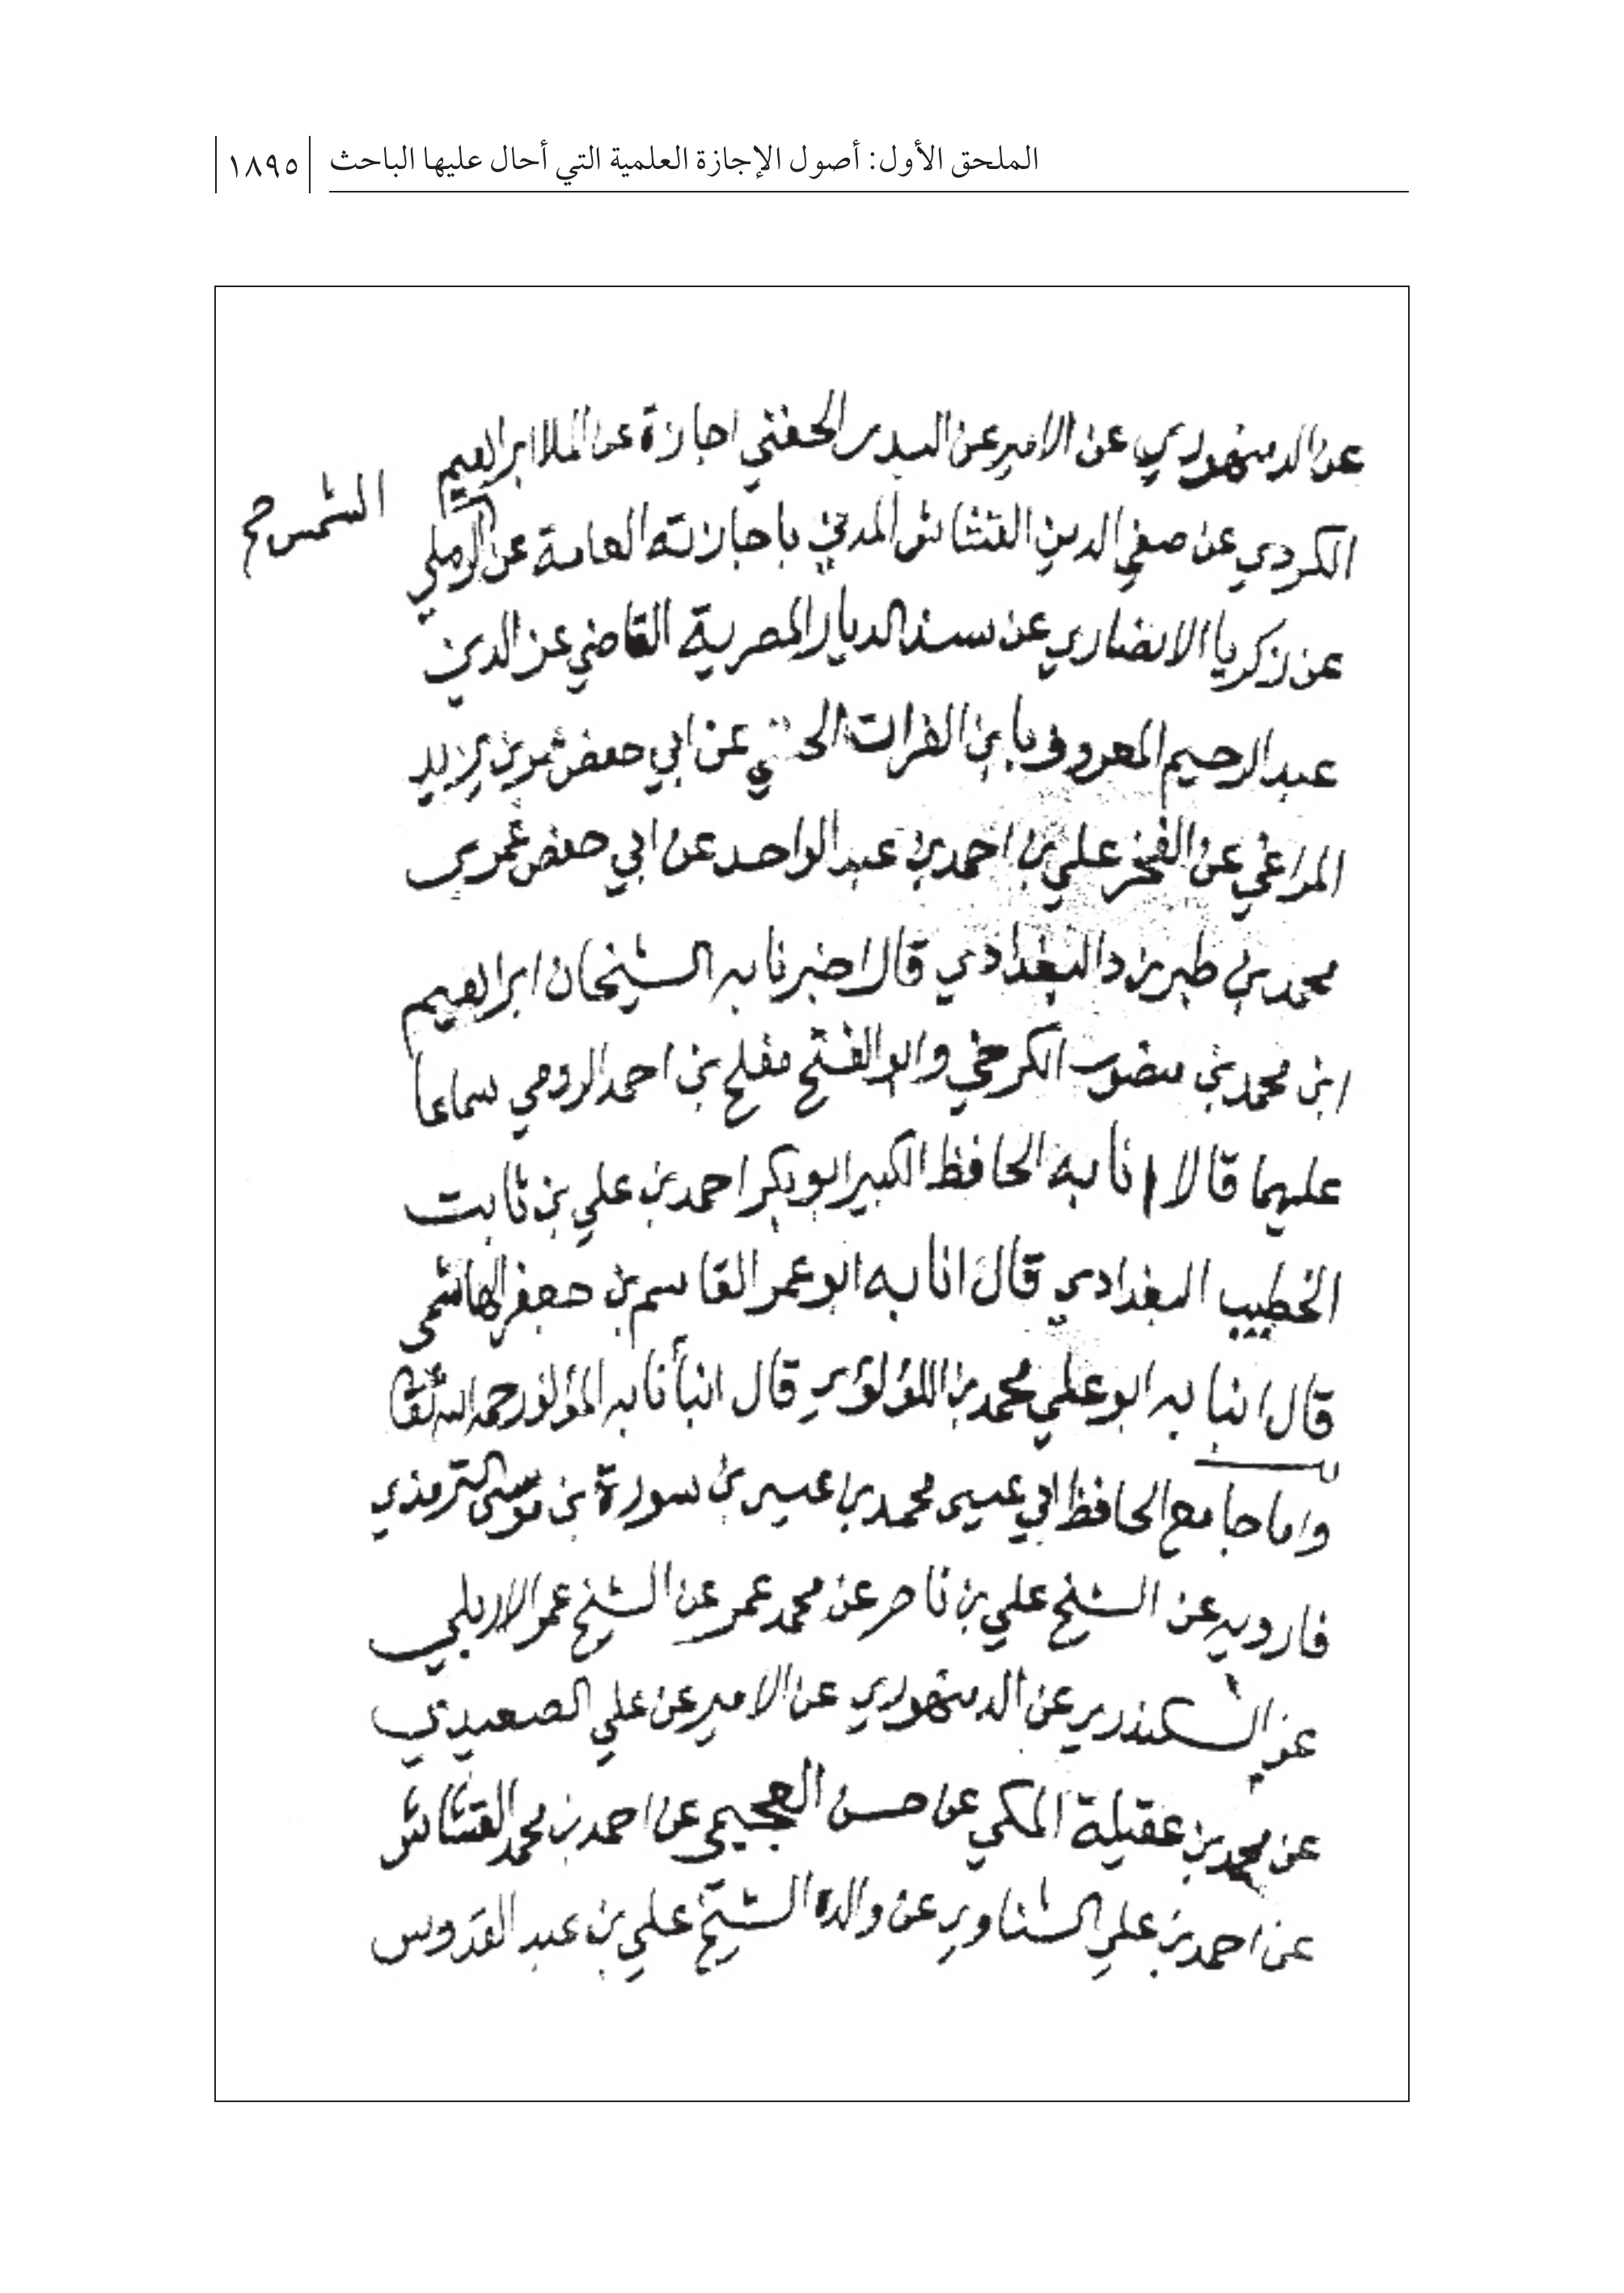 الملحق الأول: أصول الإجازة العلمية التي أحال عليها الباحث
١٨٩٥
عن الدمنهوري عن الامير عن البدر الحفني اجازة عن الملا ابراهيم
الكردي عن صفي الدين القشاشي المدني باجازته العامة عن الرملي
الشمس صح
عن زكريا الانصاري عن مسند الديار المصرية القاضي عز الدين
عبد الرحيم المعروف بابن الفرات عن ابي حفص عمر بن يزيد
المراغي عن الفخر علي بن احمد بن عبد الواحد عن ابي حفص عمر بن
محمد بن طبرزد البغدادي قال اخبرنا به الشيخان ابراهيم
ابن محمد بن منصور الكرخي وابو الفتح مفلح بن احمد الرومي سماعا
عليهما قالا انا به الحافظ الكبير ابو بكر احمد بن علي بن ثابت
الخطيب البغدادي قال انا به ابو عمر القاسم بن جعفر الهاشمي
قال انبا به ابو علي محمد بن اللؤلؤي قال انبأنا به المؤلف رحمه الله تعالى
واما جامع الحافظ ابي عيسى محمد بن عيسى بن سورة بن موسى الترمذي
فارويه عن الشيخ علي بن ناصر عن محمد عمر عن الشيخ عمر الاربلي
عن السكندري عن الدمنهوري عن الامير عن علي الصعيدي
عن محمد بن عقيلة المكي عن حسن العجيمي عن احمد بن محمد القشاشي
عن احمد بن علي الشناوي عن والده الشيخ علي بن عبد القدوس